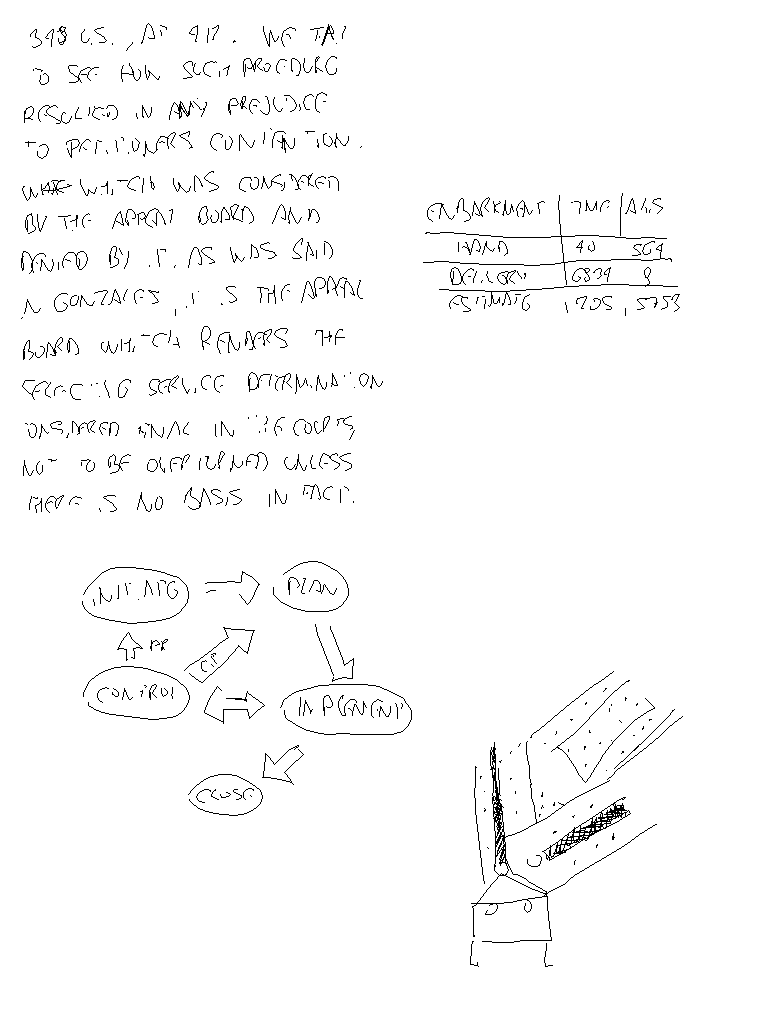 348 U.S., AT 412. WE FAIL
TO SEE HOW SUCH PROCEDURE
RESULTED IN ANY PREJUDICE
TO PETITIONERS CONTENTION.
WHICH WAS CONSIDERED
BY THE APPEAL BOARD AND
DENIED BY IT. AS WAS SAID
IN GONZALES, IT IS THE APPEAL
BOARD WHICH RENDERS THE
SELECTIVE SERVICE DETERMINATION
CONSIDERED FINAL IN THE COURTS,
NOT TO BE OVERTURNED UNLESS
THERE IS NO BASIS IN FACT.
EMBARKMENT TIME
HAND 40 564
DELIVERY 6834 8
ESTIMATE
INITIATE PLAN
CONTROL IMPLEMENT
CLOSE